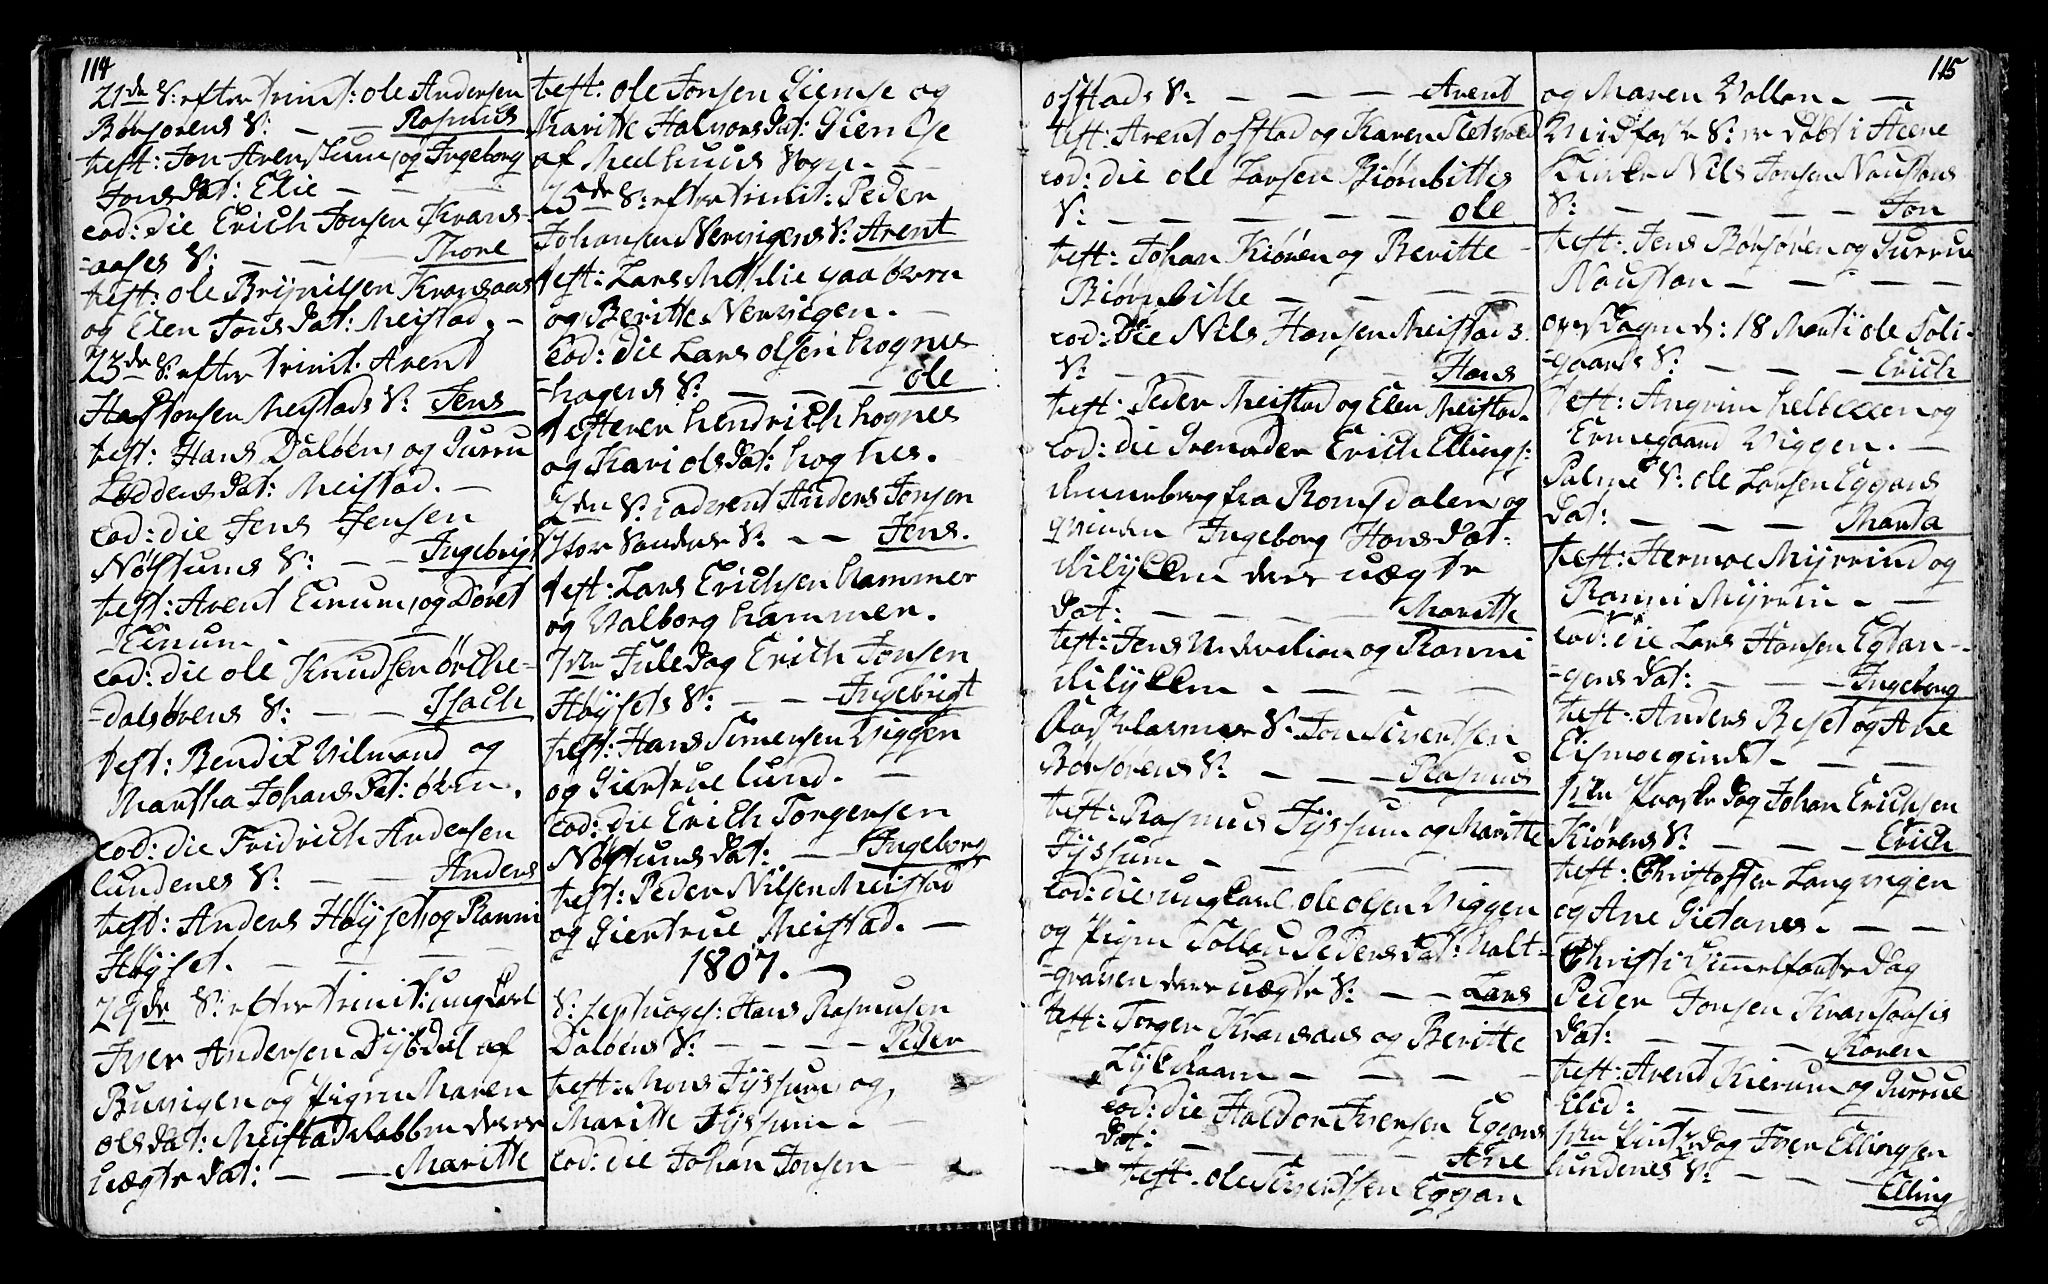 114
21de S: efter trinit: ole Andersen
Børsørens S: — — Rasmus
test: Jon Arenstum, og Ingeborg
Jonsdat: Elie — — —
eod: die Erich Jonsen Krans-
-aases S: — — — Thore
test: ole Brynilsen Kransaas
og Elen Jonsdat: Meistad. —
23de S: efter trinit. Arent
Jonsen Meistads S: Jens
test: Hans Daløen, og Gurru
Loddensdat: Meistad. —
eod: die Jens Jensen
Nøstums S: — — Ingebrigt
test: Arent Einum, og Doret
-Einum. — —
eod: die ole Knudsen Orche-
-dalsørens S: — — Isach
test: Bendix Vilmand og
Martha Johansdat: øren.
eod: die Fridrich Andersen
lundenes S: — — Anders
test: Anders Høyset og Ranni
Høyset. — — — —
24de S: efter trinit: ungkarl
Iver Andersen Dybdal af
Buvigen og pigen Maren
olsdat: Meistad deres
uægte dat: — — Maritte
test: ole Jonsen Giemse og
Maritte Halvorsdat: Giemse
af Meelhuus Sogn. —
25de S: efter trinit: Peder
Johansen Nervigens S: Arent
test: Lars øvren
og Beritte Nervigen. —
eod: die Lars olsen hognes
-hagens S: — — — ole
testerer hendrich hognes
og Kari olsdat: hognes.
2den S: i advent Anders Jonsen
S: — — Jens.
test: Lars Erichsen hammer
og Valborg hammer.
1ste Juledag Erich Jonsen
Høysets S: — — Ingebrigt
test: Hans Simensen Viggen
og Giertrue lund. —
eod: die Erich Torgersen
Nøstums dat: — Ingeborg
test: Peder Nilsen Meistad
og Giertrue Meistad. —
1807. —
S: septuages: Hans Rasmusen
Daløens S: — — — — Peder
test: Mons Jyssum og
Maritte Jyssum. —
eod: die Johan Jonsen
115
ofstads S: — — — Arent
test: Arent ofstad og Karen Sletvold
eod: die ole Larsen Biørnbittes
S: — — — — — ole
test: Johan Kiøren og Beritte
Biørnbitte — — — —
eod: Die Nils Hansen Meistads
S: — — — — — Hans
test: Peder Meistad og Elen Meistad.
eod: die Grenader Erich Ellings:
fra Romsdalen og
qvinden Ingeborg Hansdat:
deres uægte
dat: — — — — Maritte
test: Jens og Ranni
— — — —
S: Jon Sivertsen
Børsørens S: — — — Rasmus
test: Rasmus Jyssum og Maritte
Jyssum. — — — — —
eod: die ungkarl ole olsen Viggen
og pigen Pedersdat: Malt-
-graven deres uægte S: — — Lars
test: Torger Kransaas og Beritte
— — — —
eod: die Haldor Iversen Eggans
dat: — — — — — Ane
test. ole Sivertsen Eggan
og Maren Vollan. — —
Midfaste S: er døbt i
Nils Jonsen Naustans
S: — — — — Jon
test: Jens Børsøren og Gurrue
Naustan — — — —
d: 18 Marti ole Soli-
-gaards S: — — — Erich
test: Angrim og
Ermegaard Viggen. —
Palme S: ole Larsen Eggans
dat: — — — Marta
test: Hermoe Myrrind og
Ranni Myrrin. — —
eod: die Lars Hansen
-gens dat: — — — Ingeborg
test: Anders Beset og Ane
— — —
1ste Paaske dag Johan Erichsen
Kiørens S: — — — Erich
test: Christoffer Langvigen
og Ane Gietanes. — —
Christi Himmelfarts dag
Peder Jonsen Kransaases
dat: — — — — Karen
test: Arent Kierum og Gurrue
Elid: — — — —
1ste Pintzdag Iver Ellingsen
lundenes S: — — — Elling